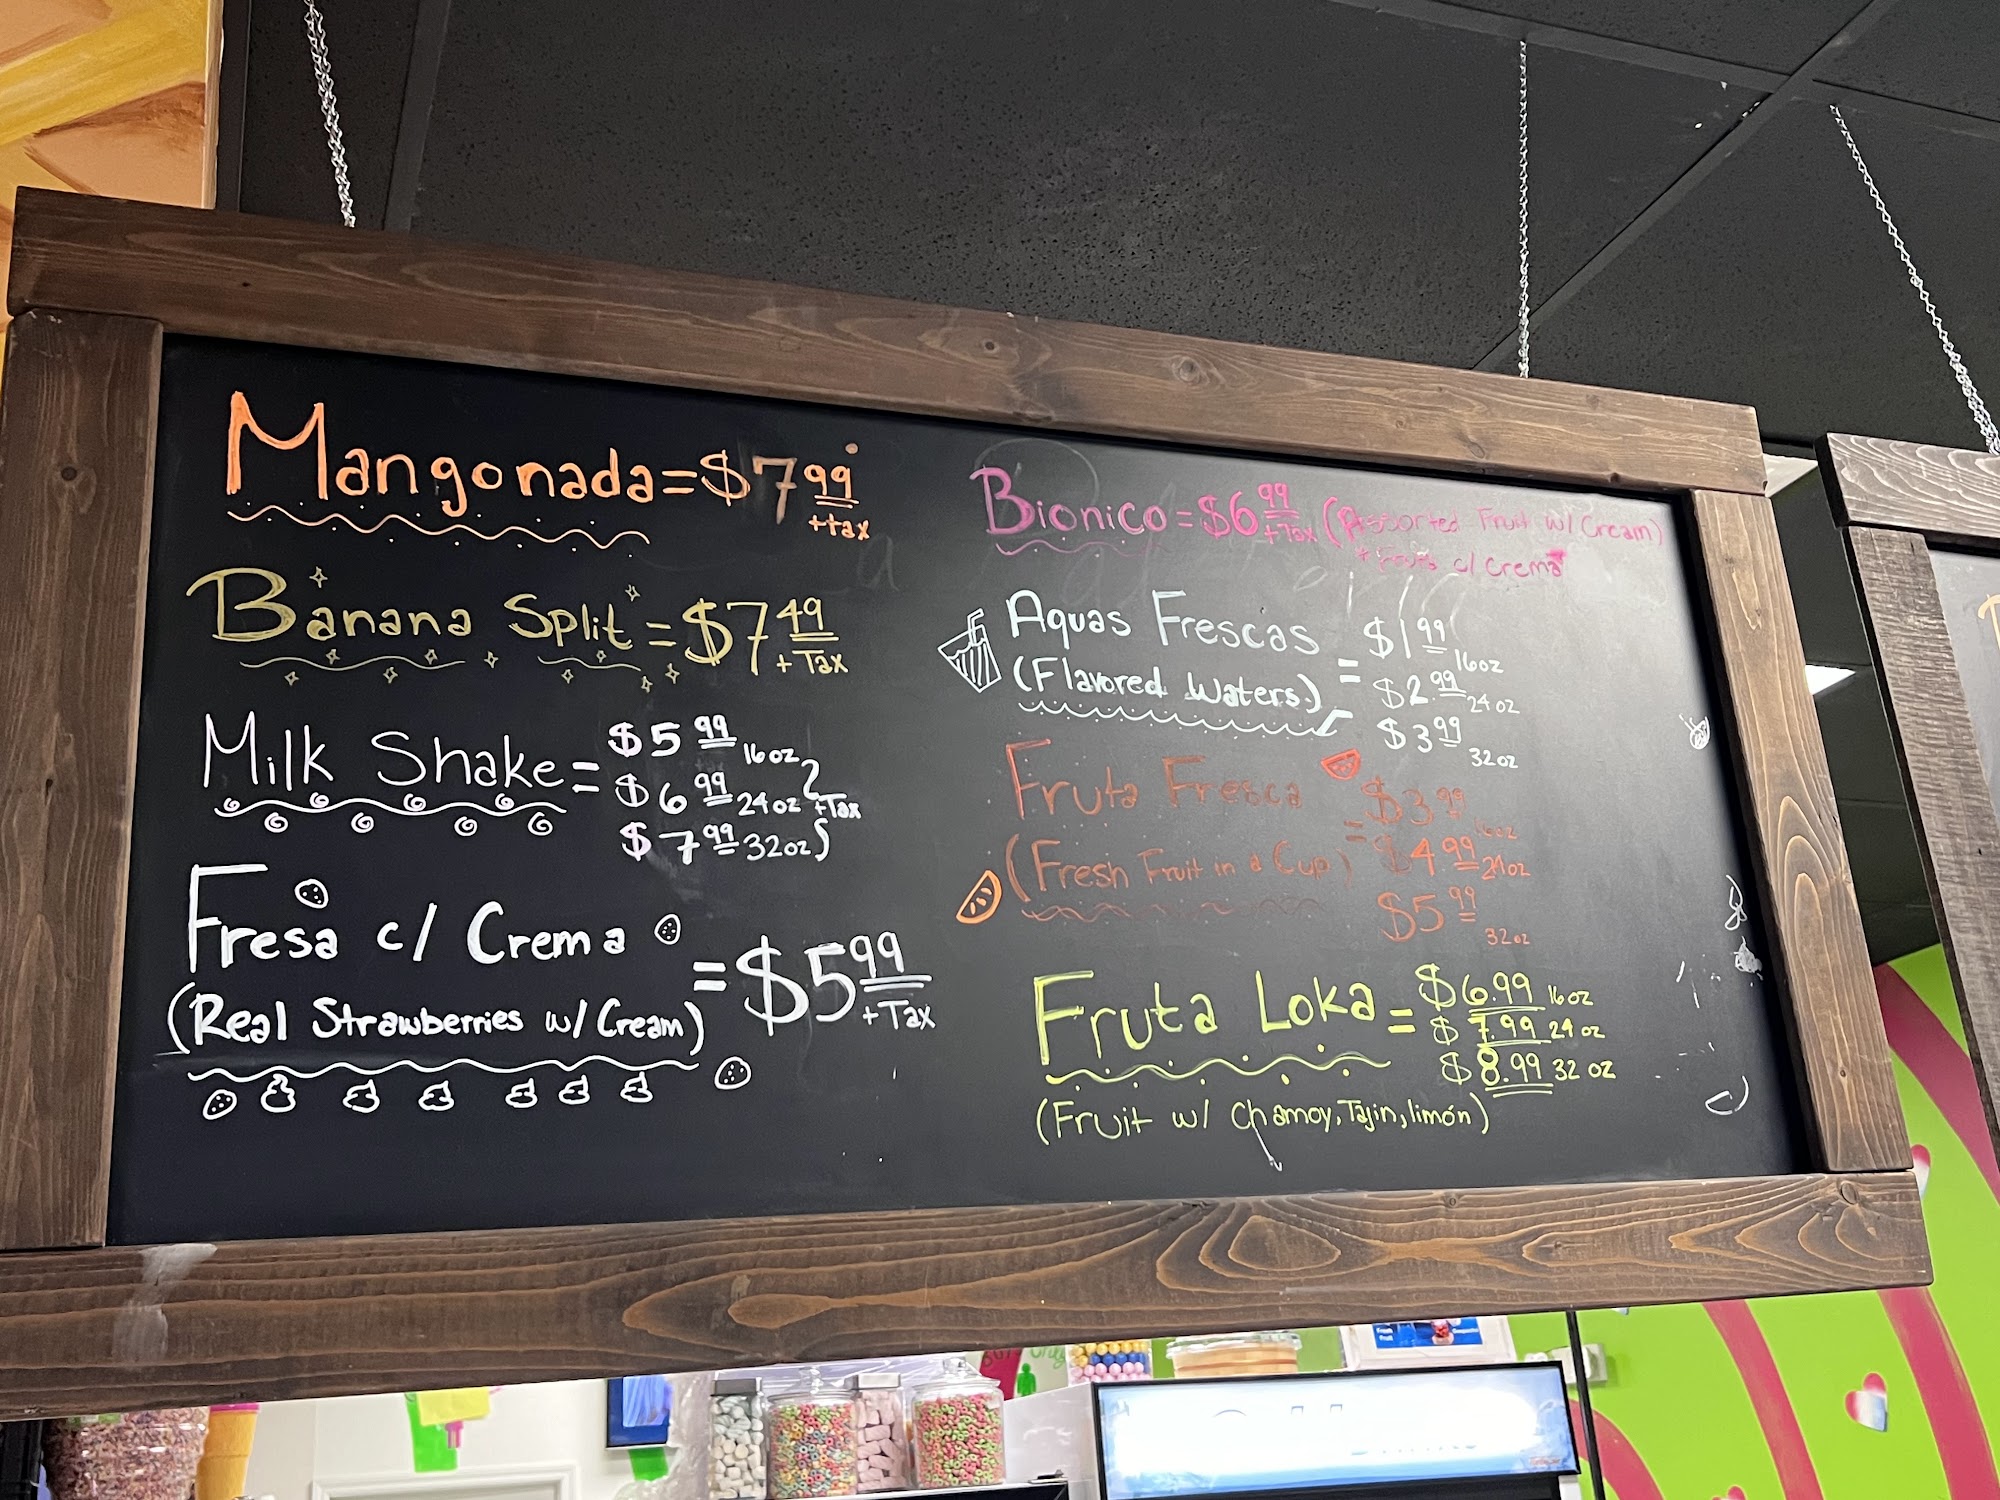 Mangonada = $7.99
+tax
Banana Split = $7.49
+ Tax
Milk Shake = $5.99 16oz
$6.99 24oz +Tax
$7.99 32oz
Fresa c/ Crema
(Real Strawberries w/ Cream) = $5.99
+ Tax
Bionico = $6.99 + Tax (Assorted Fruit w/ Cream)
c/ Crema
Aquas Frescas
(Flavored Waters) = $1.99 16oz
$2.99 24oz
$3.99 32oz
Fruta Fresca
(Fresh Fruit in a Cup) = $3.99 16oz
$4.99 24oz
$5.99 32oz
Fruta Loka = $6.99 16oz
$7.99 24oz
$8.99 32 oz
(Fruit w/ Chamoy, Tajin, limón)